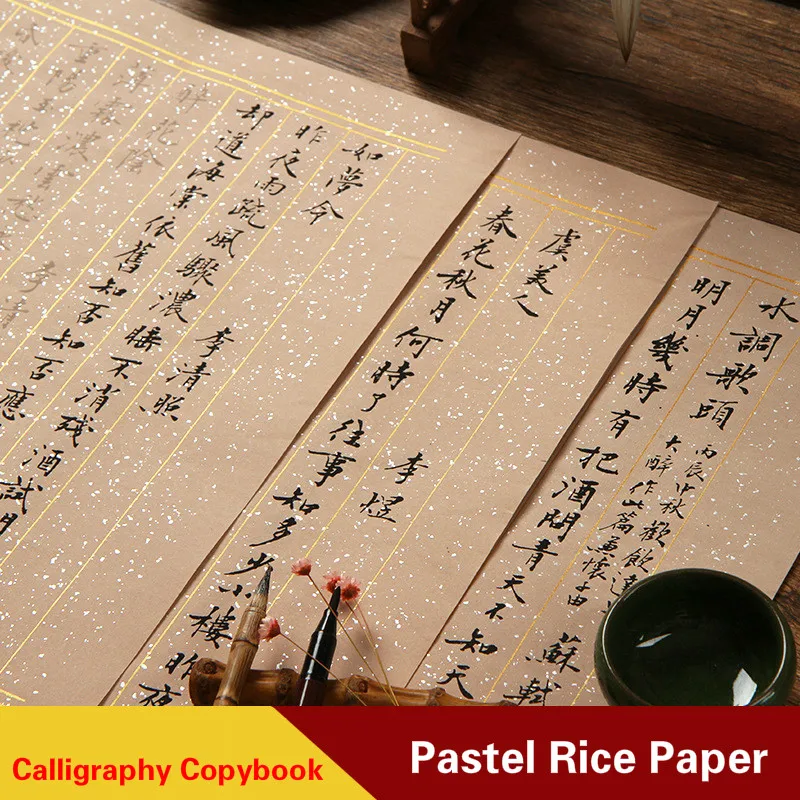 水調歌頭
丙辰中秋歡飲達
大醉作此篇兼懷子由
蘇軾
明月幾時有把酒問青天不知天
虞美人 李煜
春花秋月何時了往事知多少小樓昨夜
如夢令 李清照
昨夜雨疏風驟濃睡不消殘酒試
却道海棠依舊知否知否應
醉花陰 李清
Calligraphy Copybook
Pastel Rice Paper